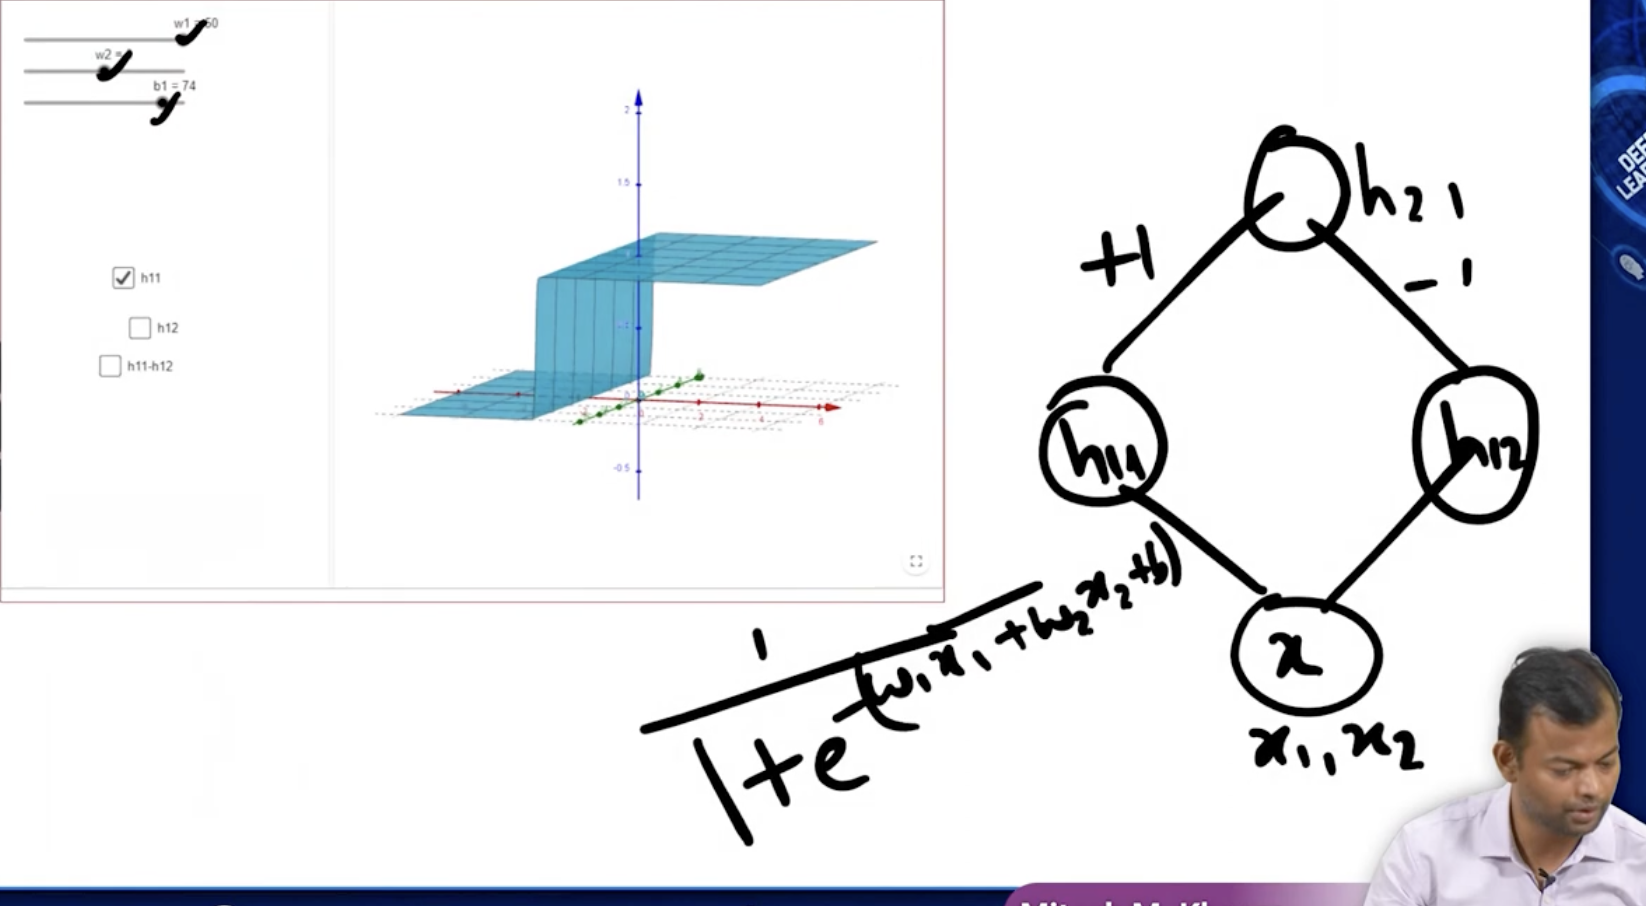 w1 = 50
w2 =
b1 = 74
h11
h12
h11-h12
2
1.5
1
0.5
0
-0.5
2
4
6
h21
+1
-1
h11
h12
x
x1, x2
1
1+e -(w1x1+w2x2+b)
DEE
LEA